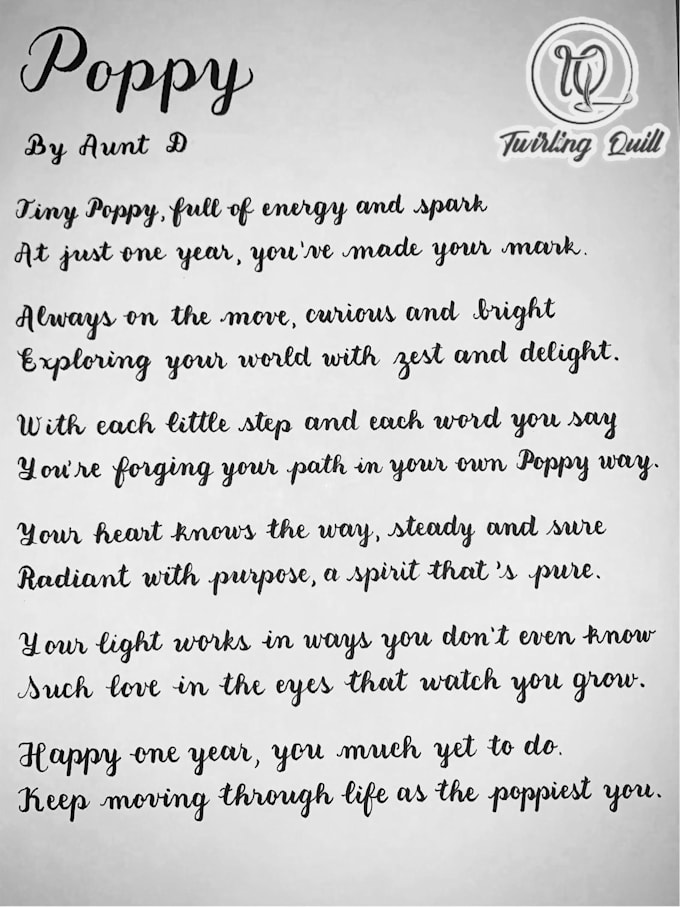 Poppy
TQ
Twirling Quill
By Aunt D
Tiny Poppy, full of energy and spark
At just one year, you've made your mark.
Always on the move, curious and bright
Exploring your world with zest and delight.
With each little step and each word you say
You're forging your path in your own Poppy way.
Your heart knows the way, steady and sure
Radiant with purpose, a spirit that's pure.
Your light works in ways you don't even know
Such love in the eyes that watch you grow.
Happy one year, you much yet to do.
Keep moving through life as the poppiest you.